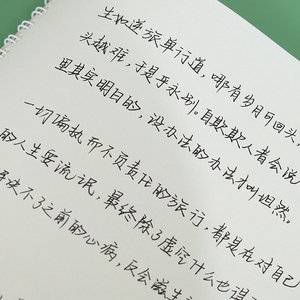 生如逆旅单行道，哪有岁月可回头，
头越难，于是乎永别。自欺欺人者会说
里其实明目的，没办法的办法才叫坦然。
一切偏执而不负责任的旅行，都是在对自己
的人生耍流氓，最终除了虚空什么也得
决不了之前的心病，反会滋生